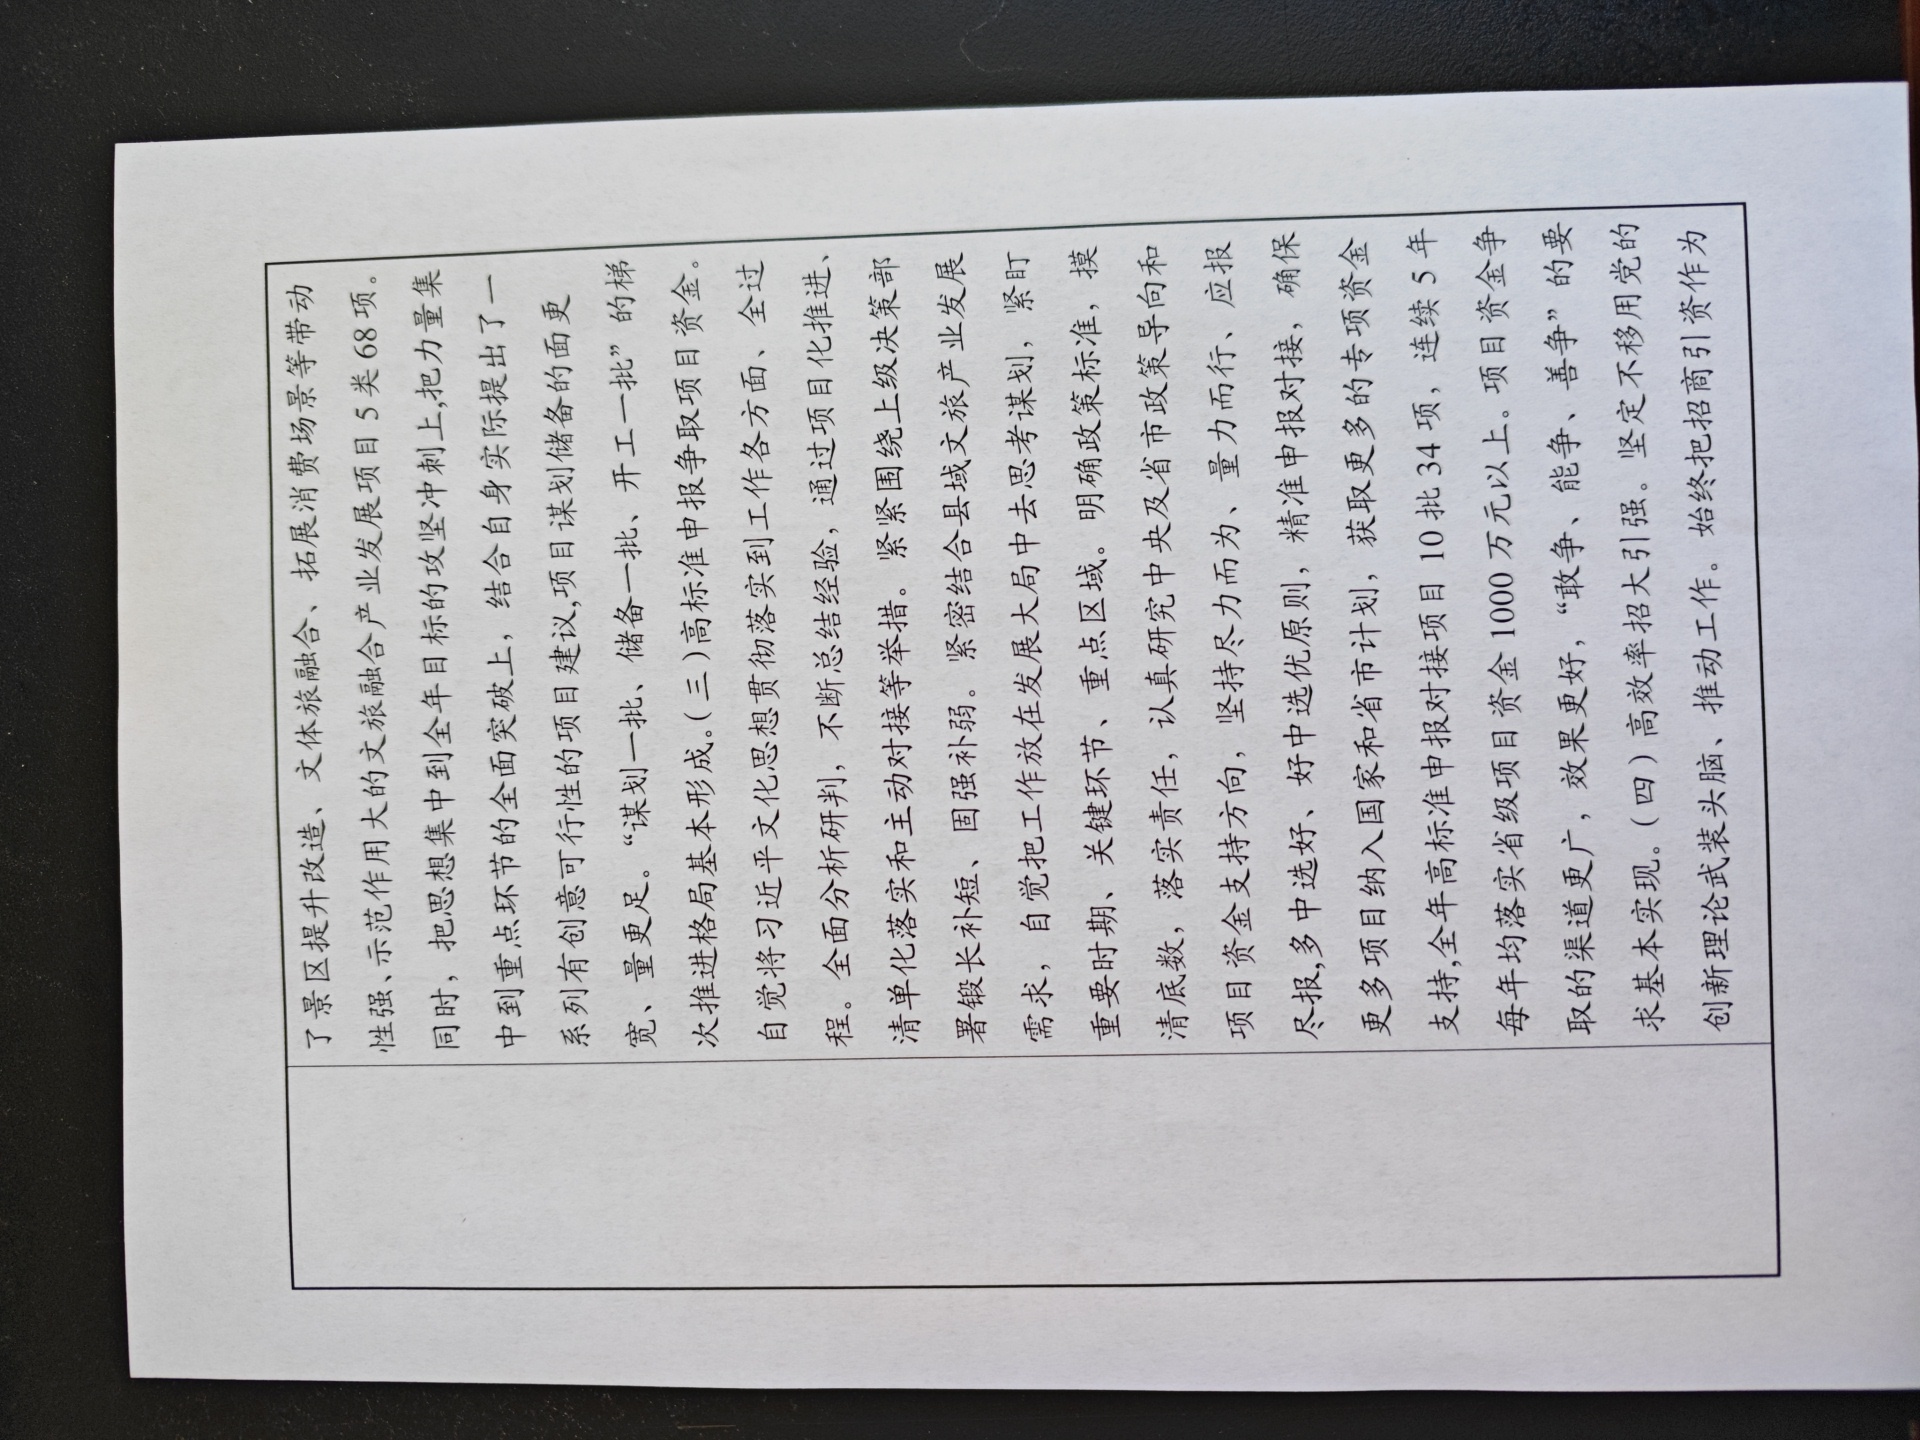 了景区提升改造、文体旅融合、拓展消费场景等带动
性强、示范作用大的文旅融合产业发展项目 5 类 68 项。
同时，把思想集中到全年目标的攻坚冲刺上,把力量集
中到重点环节的全面突破上，结合自身实际提出了一
系列有创意可行性的项目建议,项目谋划储备的面更
宽、量更足。“谋划一批、储备一批、开工一批”的梯
次推进格局基本形成。（三）高标准申报争取项目资金。
自觉将习近平文化思想贯彻落实到工作各方面、全过
程。全面分析研判，不断总结经验，通过项目化推进、
清单化落实和主动对接等举措。紧紧围绕上级决策部
署锻长补短、固强补弱。紧密结合县域文旅产业发展
需求，自觉把工作放在发展大局中去思考谋划，紧盯
重要时期、关键环节、重点区域。明确政策标准，摸
清底数，落实责任，认真研究中央及省市政策导向和
项目资金支持方向，坚持尽力而为、量力而行、应报
尽报,多中选好、好中选优原则，精准申报对接，确保
更多项目纳入国家和省市计划，获取更多的专项资金
支持,全年高标准申报对接项目 10 批 34 项，连续 5 年
每年均落实省级项目资金 1000 万元以上。项目资金争
取的渠道更广，效果更好，“敢争、能争、善争”的要
求基本实现。（四）高效率招大引强。坚定不移用党的
创新理论武装头脑、推动工作。始终把招商引资作为